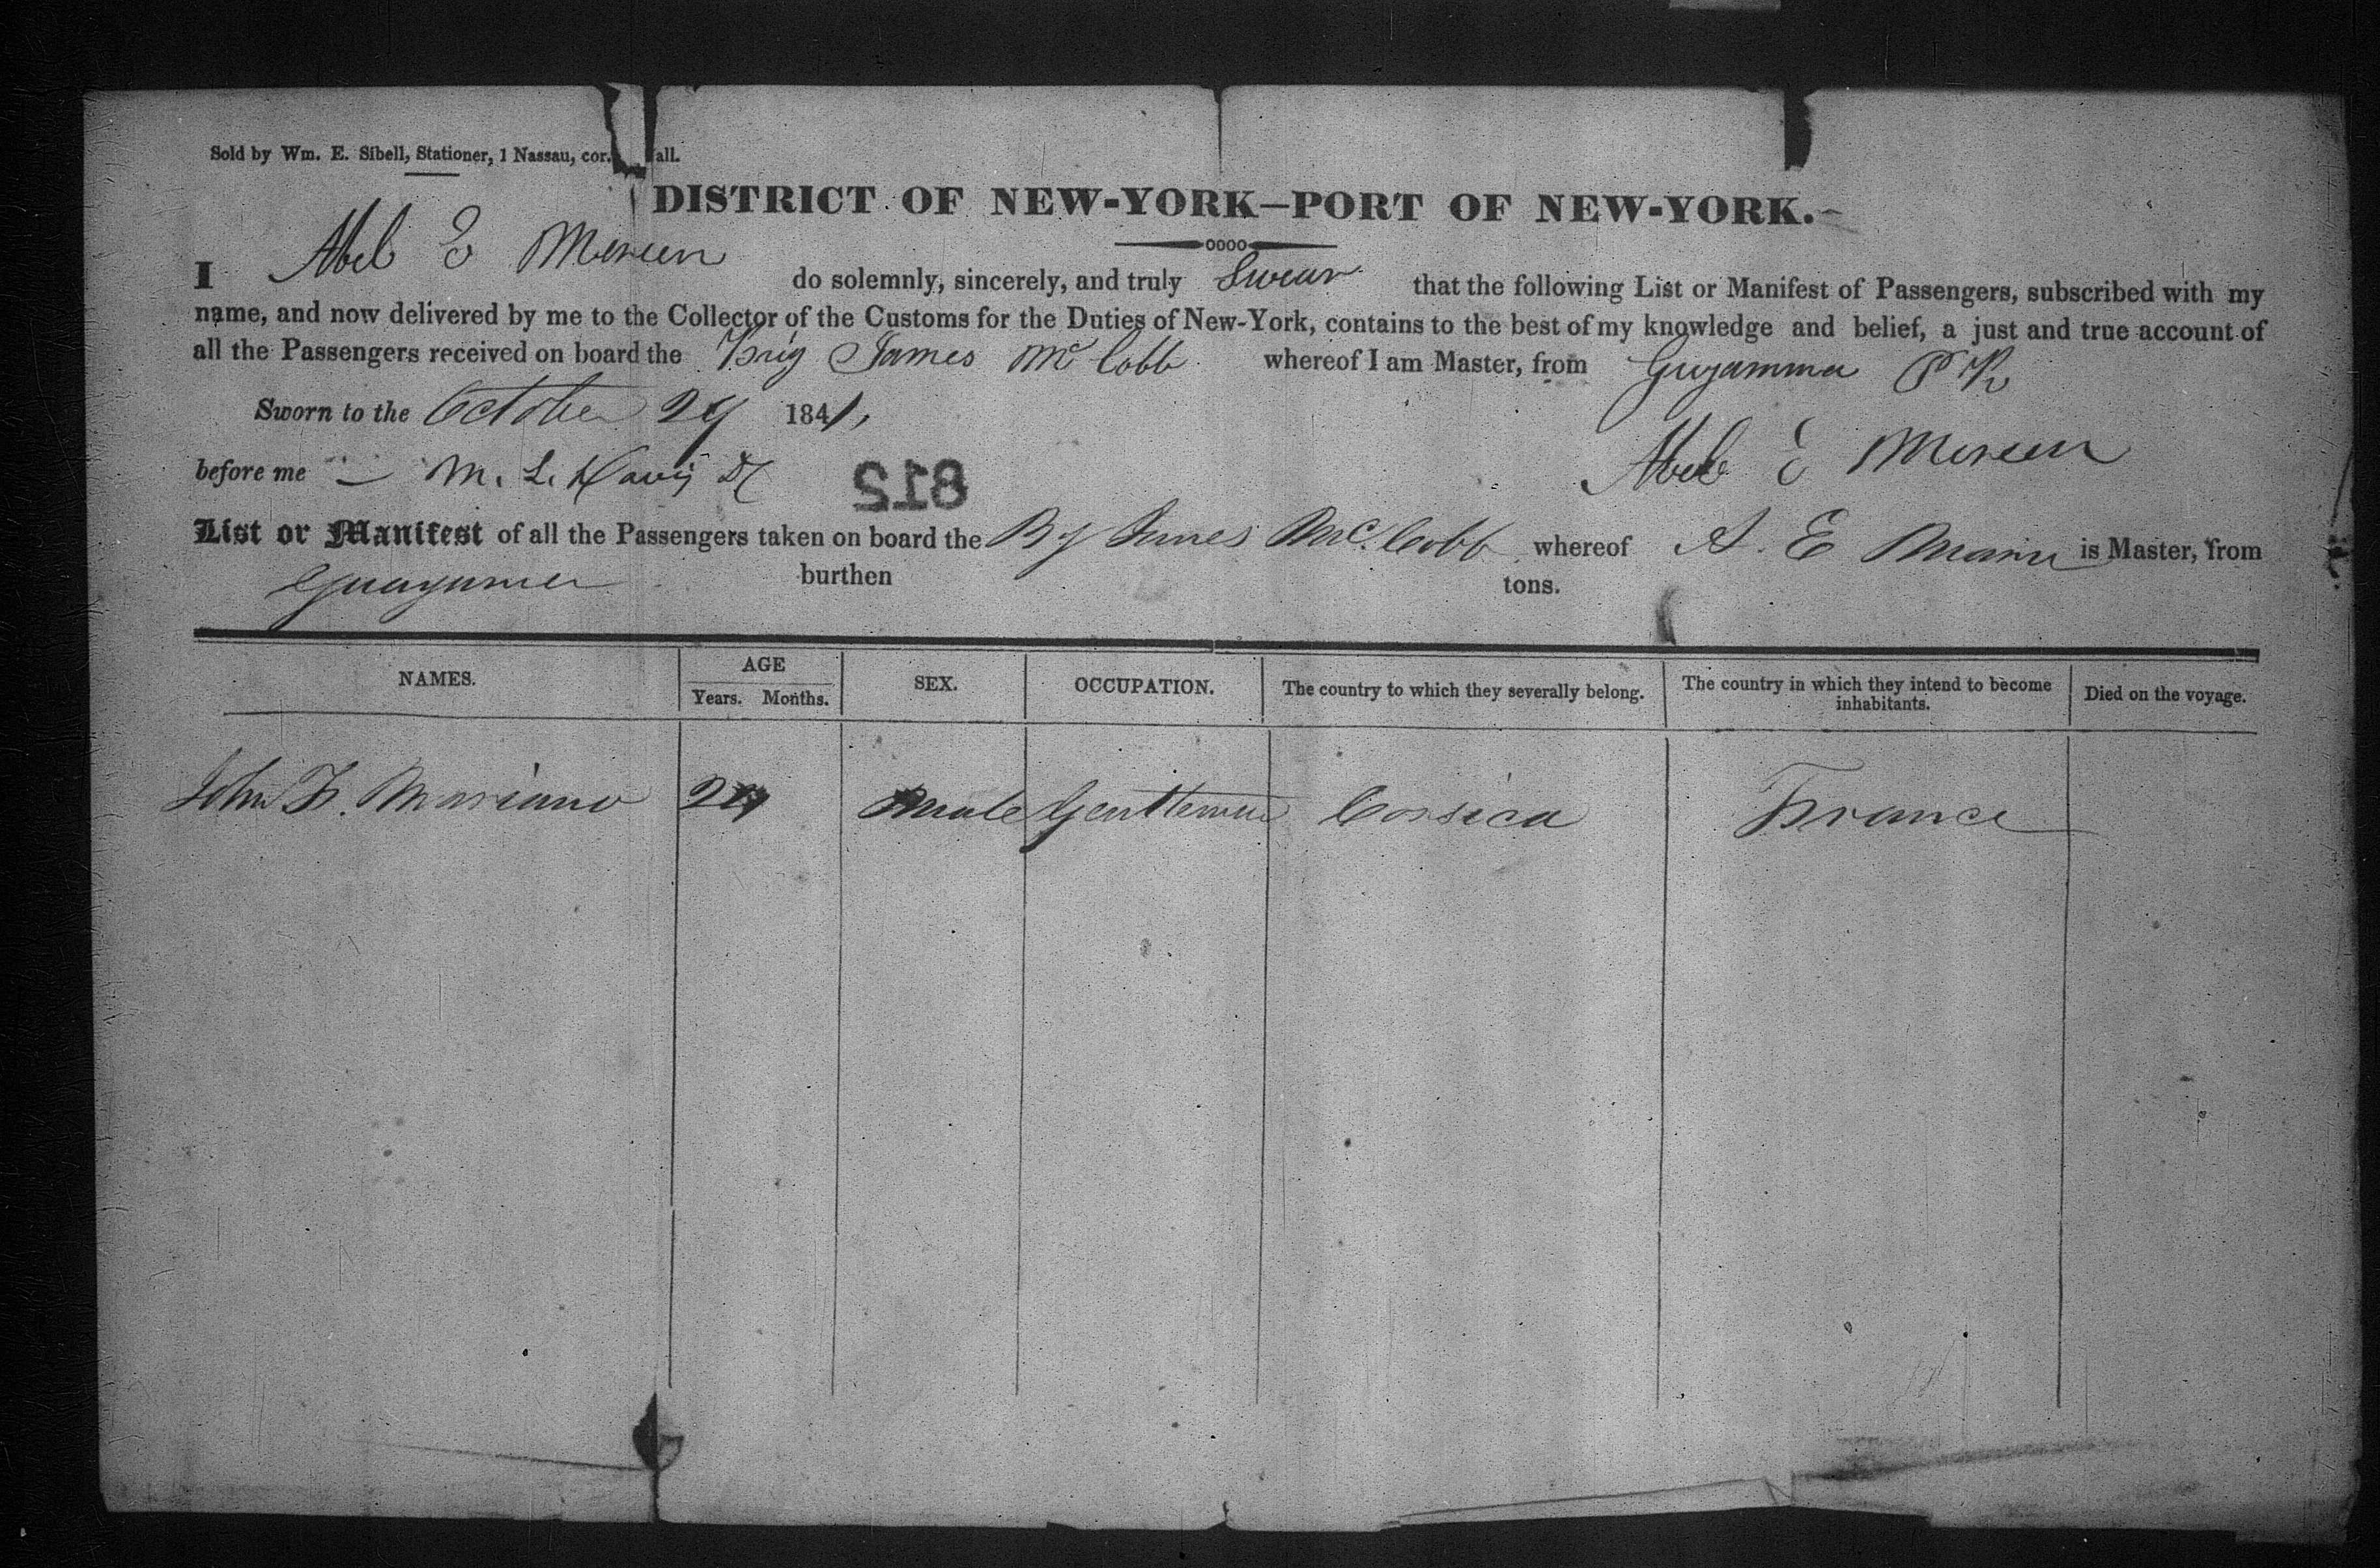 Sold by Wm. E. Sibell, Stationer, 1 Nassau, cor. all.
DISTRICT OF NEW-YORK—PORT OF NEW-YORK.
I Abel E Mereen do solemnly, sincerely, and truly Swear that the following List or Manifest of Passengers, subscribed with my
name, and now delivered by me to the Collector of the Customs for the Duties of New-York, contains to the best of my knowledge and belief, a just and true account of
all the Passengers received on board the Brig James Mc Cobb whereof I am Master, from Guyamma P R
Sworn to the October 29 1841,
before me M. L. Davis
Abel E Mereen
812
List or Manifest of all the Passengers taken on board the Bg James Mc. Cobb whereof A. E is Master, from
burthen tons.
NAMES. AGE Years. Months. SEX. OCCUPATION. The country to which they severally belong. The country in which they intend to become inhabitants. Died on the voyage.
John F. Mariano Male Gentleman Corsica France